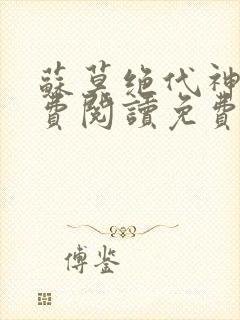 蘇莫絕代神
費閱讀免費
傅鉴